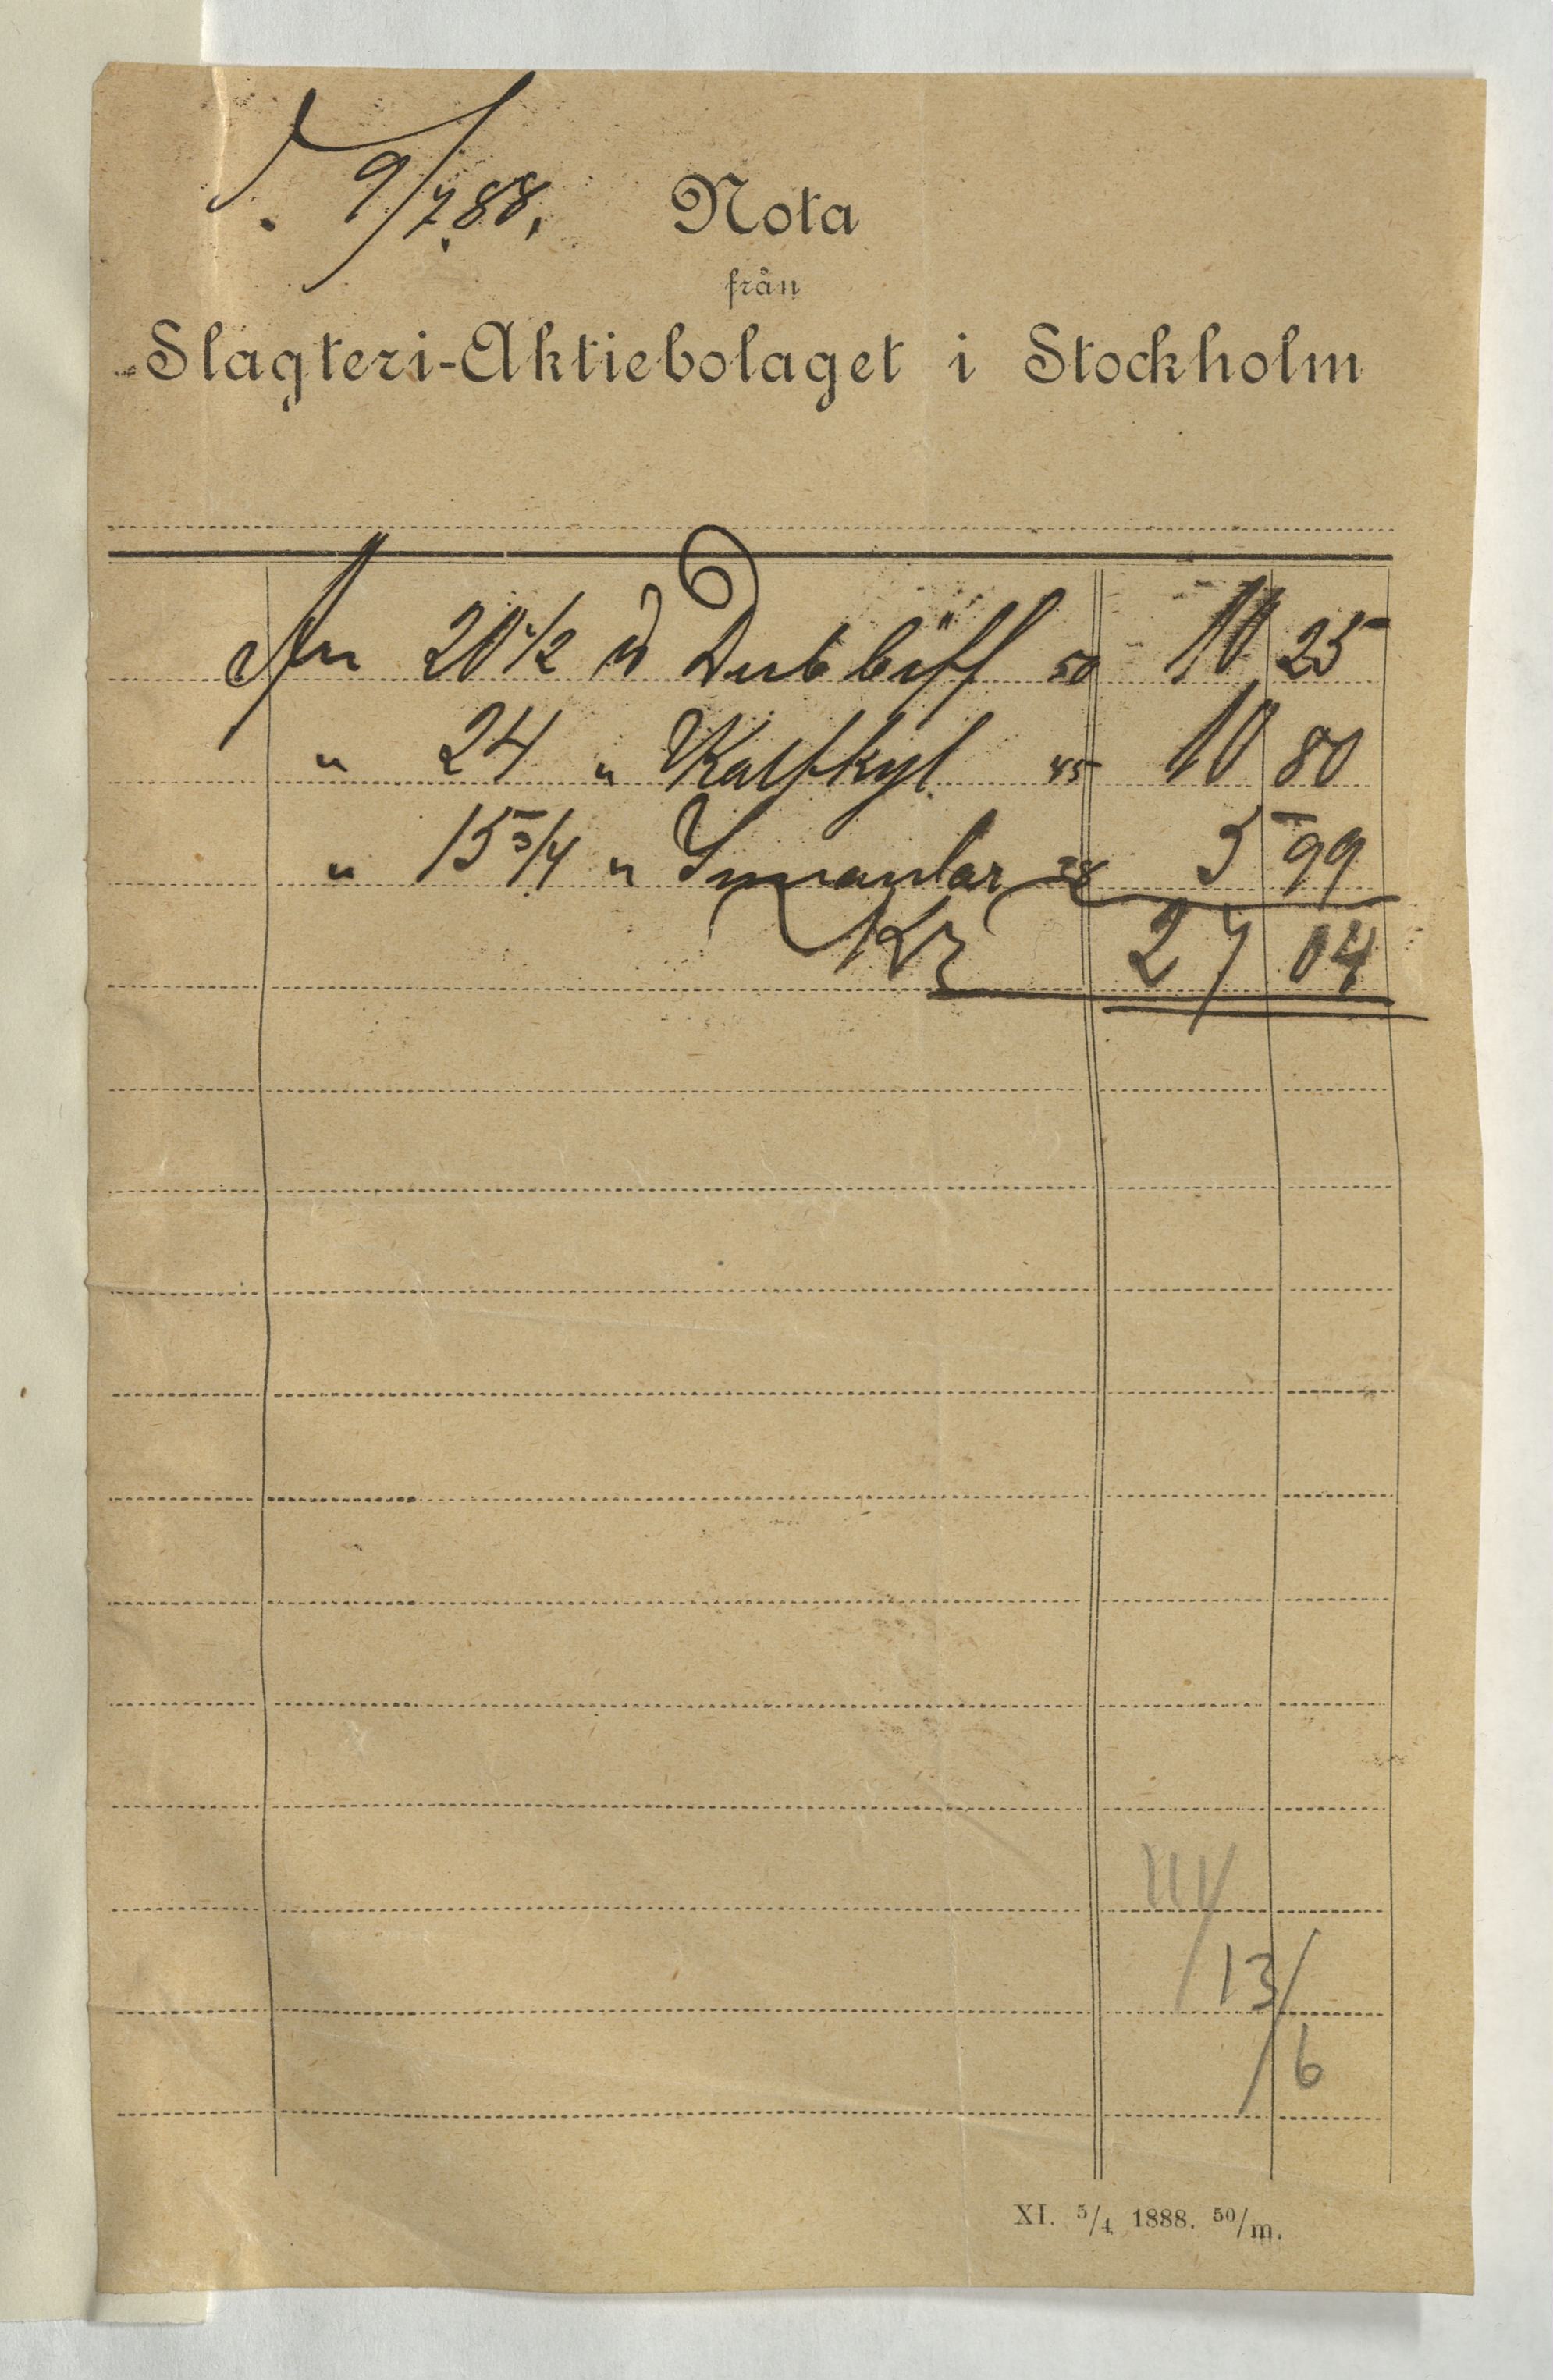 9/7 88.
Nota
från
Slagteri-Aktiebolaget i Stockholm
An 20 1/2 ℔ Dub biff 50 10 25
" 24 " Kalfkyl 45 10 80
" 15 3/4 " Innanlår 38 5 99
Kr 27 04
III/
13/
6
XI. 5/4 1888. 50/m.